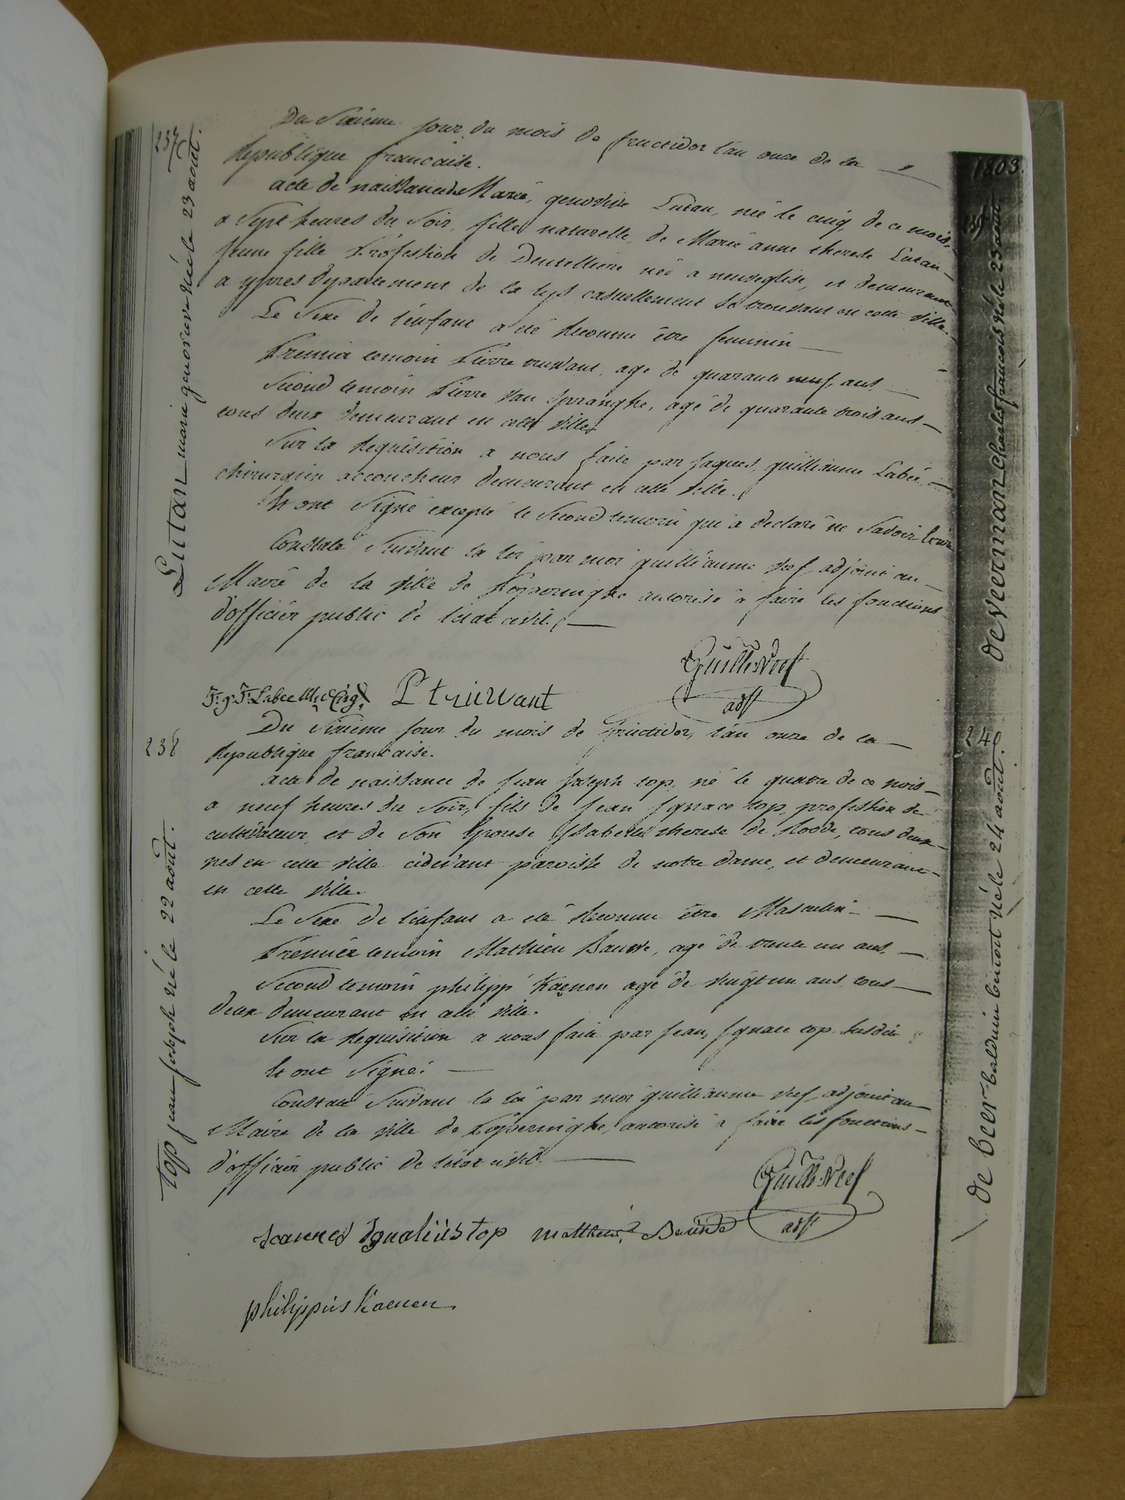 237
Lutan marie genovieve née le 23 août.
Du Sixieme jour du mois de fructidor l'an onze de la
Republique française.
acte de naissance de Marie, genovieve Lutan, née le cinq de ce mois
a Sept heures du Soir, fille naturelle, de Marie anne therese Lutan
jeune fille Profession de Dentelliere née a neuveglise, et demeurant
a ypres departement de la lys casuellement Se trouvant en cette Ville.
Le Sexe de l'enfant a été Reconnu être feminin
Premier temoin Pierre truwant, agé de quarante neuf ans
Second temoin Pierre Van Spranghe, agé de quarante trois ans
tous deux demeurant en cette Ville
Sur la Requisition a nous faite par Jaques, guilliaume Labée
chirurgien accoucheur demeurant en cette Ville.
Et ont Signé excepté le Second temoin qui a declaré ne Savoir
Constaté Suivant la loi par moi guilliaume Nef adjoint au
Maire de la Ville de Poperinghe autorisé à faire les fonctions
d'officier public de l'etat civil.
Guille Neef
adjt
J: g: J: Labee P truwant
238
top jean Joseph Né le 22 août.
Du Sixieme Jour du mois de fructidor, l'an onze de la
Republique française.
acte de naissance de Jean Joseph top, né le quatre de ce mois
a neuf heures du Soir, fils de Jean Ignace top, profession de
cultivateur, et de Son Epouse Isabelle therese de Roode, tous deux
nes en cette Ville cidevant paroisse de notre dame, et demeurant
en cette Ville.
Le Sexe de l'enfant a été Reconnu être Masculin
Premier temoin Mathieu Baude, agé de trente un ans,
Second temoin philippe Kaenen agé de Vingt un ans tous
deux demeurant en cette Ville.
Sur la Requisition a nous faite par Jean, Ignace top Susdit
Et ont Signé.
Constaté Suivant la loi par moi guilliaume Nef adjoint au
Maire de la Ville de Poperinghe, autorisé à faire les fonctions
d'officier public de l'etat civil.
Guille Neef
adjt
Joannes Ignatius top
philippus Kaenen
1803.
de Veerman Charles francois Né le 23 août
240
de beer balduin benoit Né le 24 août.